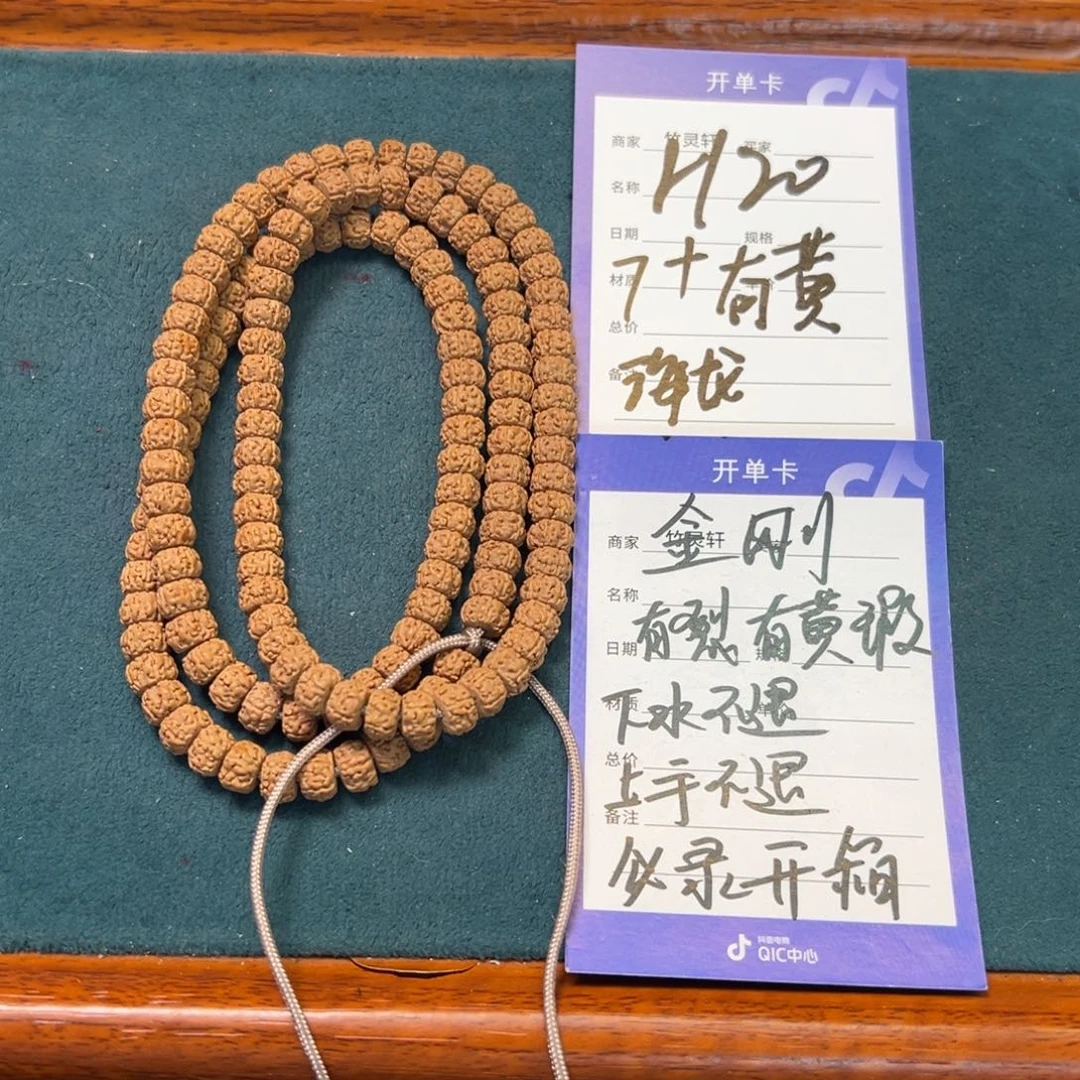 开单卡
商家 竹灵轩 买家
H20
名称
日期 规格
7+有黄
总价
降龙
开单卡
金刚
商家 竹灵轩
名称
有裂有黄瑕
日期
材质
下水不退
总价
上手不退
备注
必录开箱
抖音电商
QIC中心